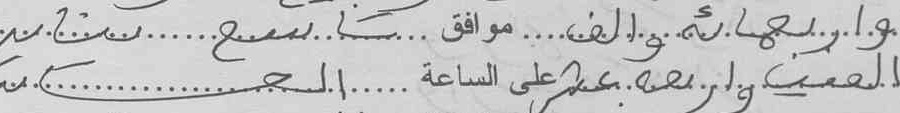 و اربعمائة و الف .... موافق ... سابع ...... يناير
الفين و اربعة عشر على الساعة ..... ال